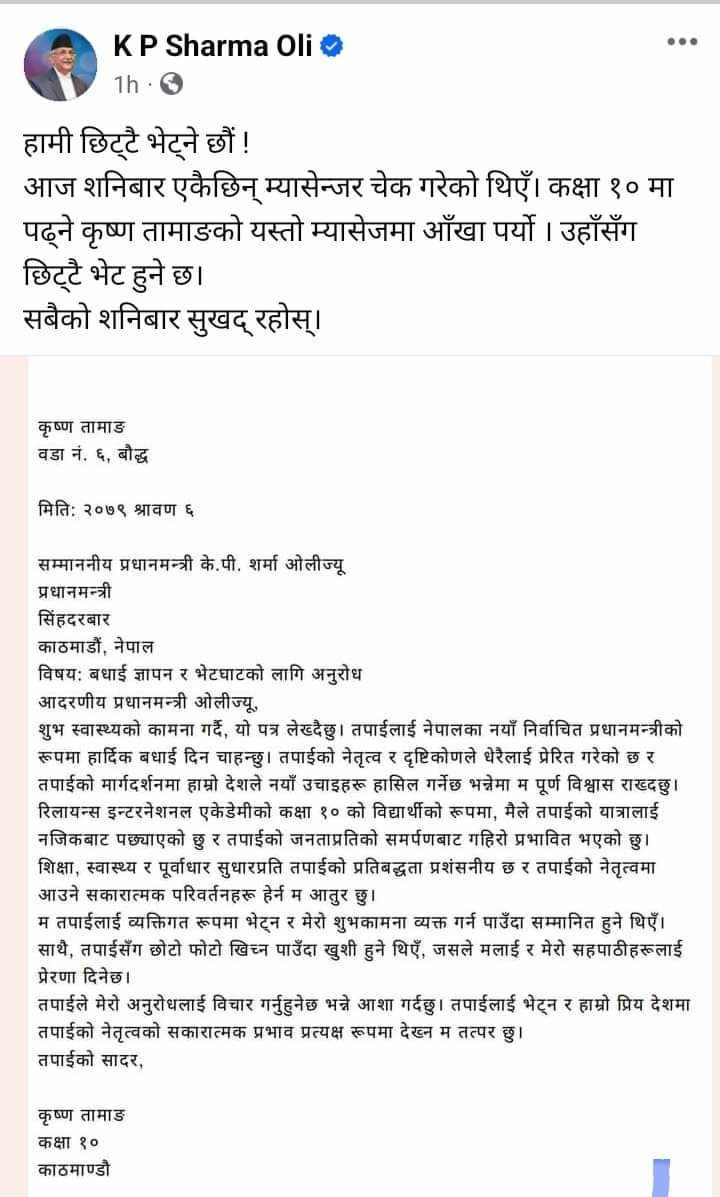 K P Sharma Oli
1h ·
हामी छिट्टै भेट्ने छौं !
आज शनिबार एकैछिन् म्यासेन्जर चेक गरेको थिएँ। कक्षा १० मा
पढ्ने कृष्ण तामाङको यस्तो म्यासेजमा आँखा पर्यो । उहाँसँग
छिट्टै भेट हुने छ।
सबैको शनिबार सुखद् रहोस्।
कृष्ण तामाङ
वडा नं. ६, बौद्ध
मिति: २०७९ श्रावण ६
सम्माननीय प्रधानमन्त्री के.पी. शर्मा ओलीज्यू
प्रधानमन्त्री
सिंहदरबार
काठमाडौं, नेपाल
विषय: बधाई ज्ञापन र भेटघाटको लागि अनुरोध
आदरणीय प्रधानमन्त्री ओलीज्यू,
शुभ स्वास्थ्यको कामना गर्दै, यो पत्र लेख्दैछु। तपाईलाई नेपालका नयाँ निर्वाचित प्रधानमन्त्रीको
रूपमा हार्दिक बधाई दिन चाहन्छु। तपाईको नेतृत्व र दृष्टिकोणले धेरैलाई प्रेरित गरेको छ र
तपाईको मार्गदर्शनमा हाम्रो देशले नयाँ उचाइहरू हासिल गर्नेछ भन्नेमा म पूर्ण विश्वास राख्दछु।
रिलायन्स इन्टरनेशनल एकेडेमीको कक्षा १० को विद्यार्थीको रूपमा, मैले तपाईको यात्रालाई
नजिकबाट पछ्याएको छु र तपाईको जनताप्रतिको समर्पणबाट गहिरो प्रभावित भएको छु।
शिक्षा, स्वास्थ्य र पूर्वाधार सुधारप्रति तपाईको प्रतिबद्धता प्रशंसनीय छ र तपाईको नेतृत्वमा
आउने सकारात्मक परिवर्तनहरू हेर्न म आतुर छु।
म तपाईलाई व्यक्तिगत रूपमा भेट्न र मेरो शुभकामना व्यक्त गर्न पाउँदा सम्मानित हुने थिएँ।
साथै, तपाईसँग छोटो फोटो खिच्न पाउँदा खुशी हुने थिएँ, जसले मलाई र मेरो सहपाठीहरूलाई
प्रेरणा दिनेछ।
तपाईले मेरो अनुरोधलाई विचार गर्नुहुनेछ भन्ने आशा गर्दछु। तपाईलाई भेट्न र हाम्रो प्रिय देशमा
तपाईको नेतृत्वको सकारात्मक प्रभाव प्रत्यक्ष रूपमा देख्न म तत्पर छु।
तपाईको सादर,
कृष्ण तामाङ
कक्षा १०
काठमाण्डौ